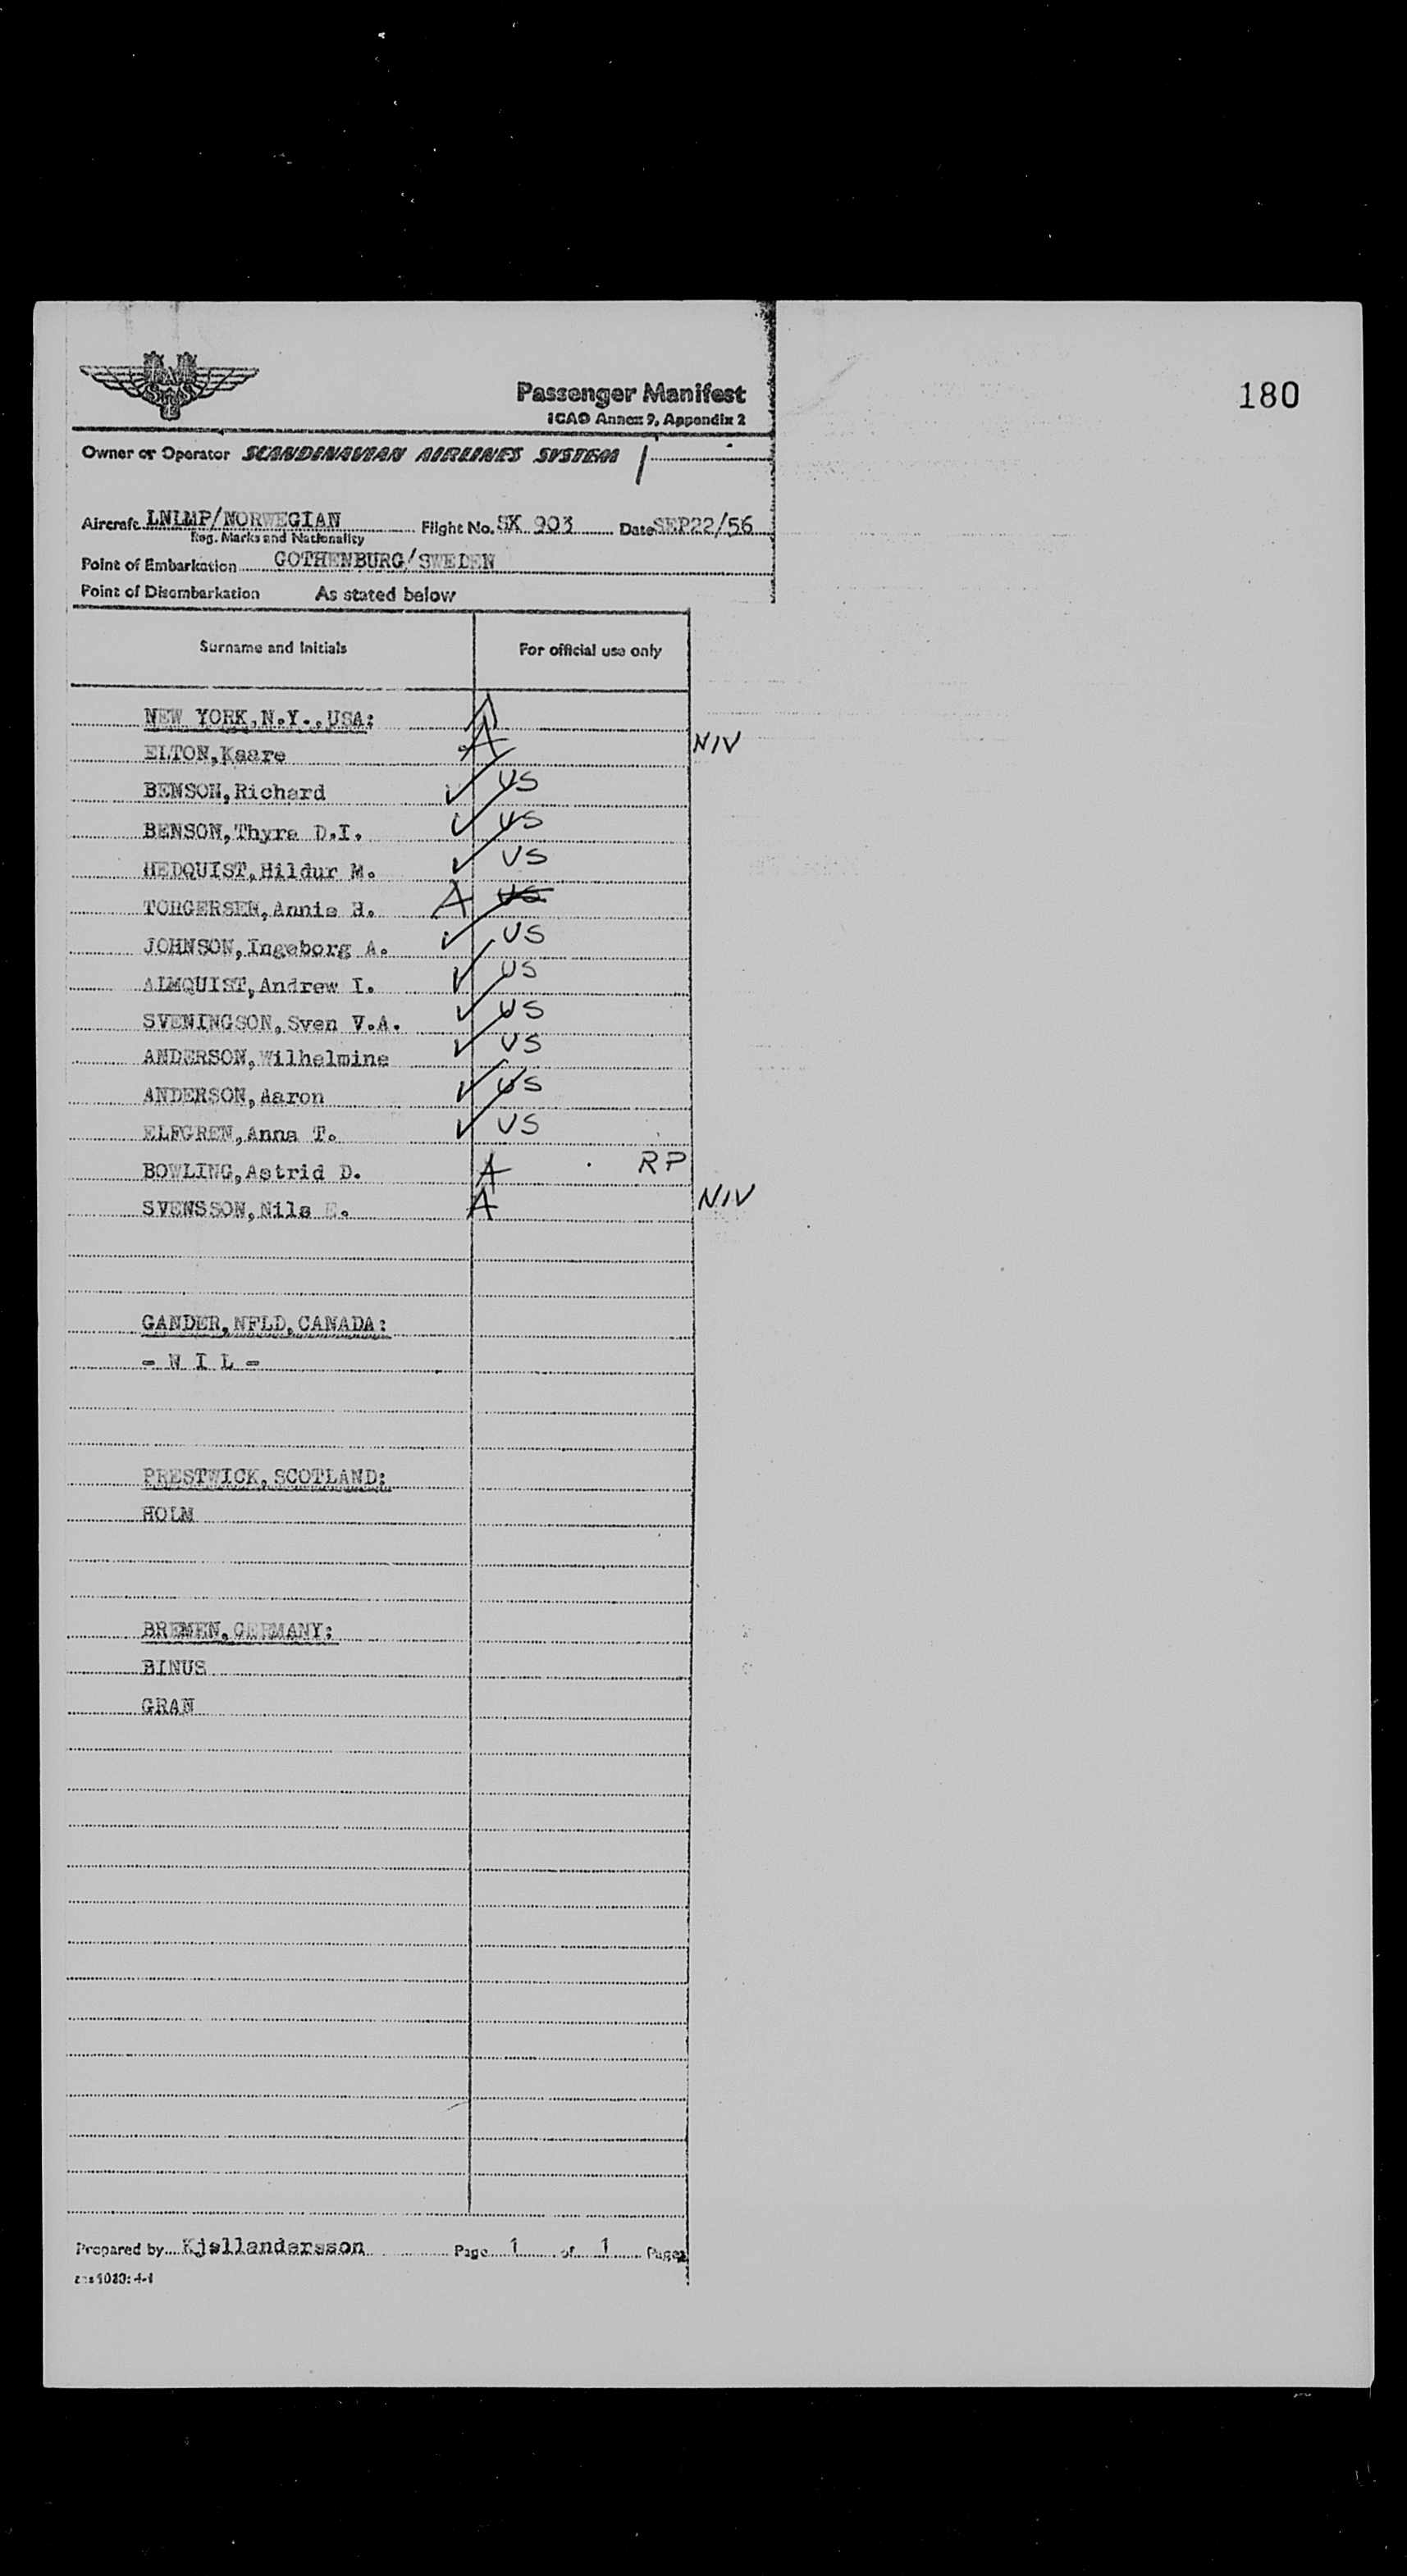 SAS
Passenger Manifest
ICAO Annex 9, Appendix 2
180
Owner or Operator SCANDINAVIAN AIRLINES SYSTEM
Aircraft LNLMP/NORWEGIAN Flight No. SK 903 Date SEP22/56
Reg. Marks and Nationality
Point of Embarkation GOTHENBURG/SWEDEN
Point of Disembarkation As stated below
Surname and Initials For official use only
NEW YORK, N.Y., USA: A
ELTON, Kaare A NIV
BENSON, Richard ✓ US
BENSON, Thyra D.I. ✓ US
HEDQUIST, Hildur M. ✓ US
TORGERSEN, Annie H. A US
JOHNSON, Ingeborg A. ✓ US
ALMQUIST, Andrew I. ✓ US
SVENINGSON, Sven V.A. ✓ US
ANDERSON, Wilhelmine ✓ US
ANDERSON, Aaron ✓ US
ELFGREN, Anna T. ✓ US
BOWLING, Astrid D. A RP
SVENSSON, Nils E. A NIV
GANDER, NFLD, CANADA:
- N I L -
PRESTWICK, SCOTLAND:
HOLM
BREMEN, GERMANY:
BINUS
GRAN
Prepared by Kjellandersson Page 1 of 1 Pages